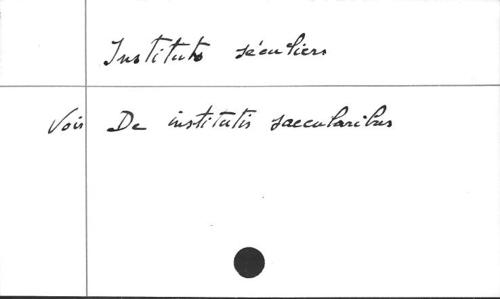 Instituts séculiers
Voir De institutis saecularibus